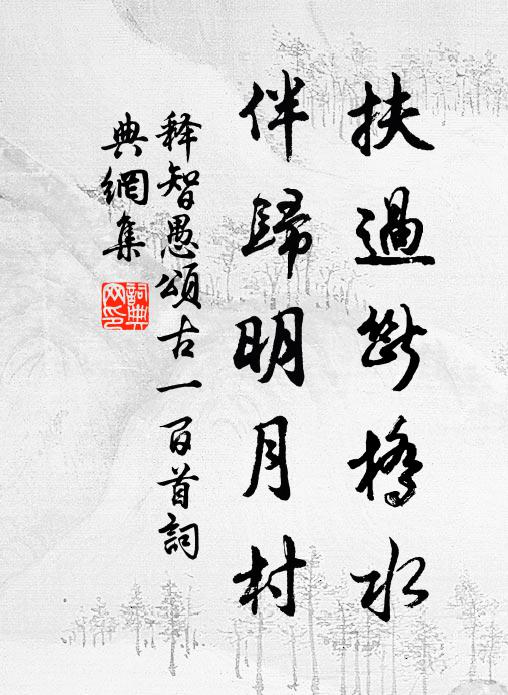 扶過斷橋水
伴歸明月村
釋智愚頌古一百首詞
典網集
詞典
网印